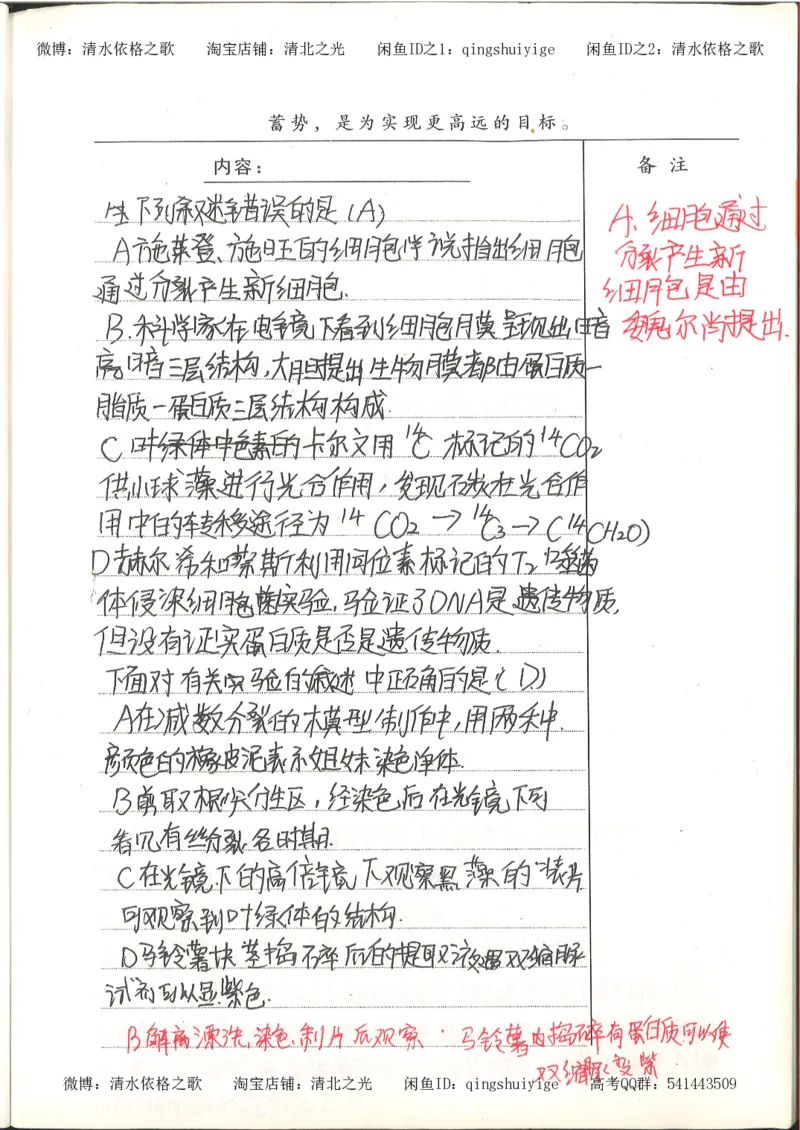 微博：清水依格之歌 淘宝店铺：清北之光 闲鱼ID之1：qingshuiyige 闲鱼ID之2：清水依格之歌
蓄势，是为实现更高远的目标。
内容：
备 注
下列叙述错误的是（A）
A施莱登、施旺的细胞学说指出细胞
通过分裂产生新细胞.
B.科学家在电镜下看到细胞膜呈现出暗
亮暗三层结构,大胆提出生物膜都由蛋白质一
脂质一蛋白质三层结构构成.
C叶绿体中色素的卡尔文用¹⁴C标记的¹⁴CO₂
供小球藻进行光合作用,发现碳在光合作
用中的转移途径为¹⁴CO₂→¹⁴C₃→C¹⁴(CH₂O)
D赫尔希和蔡斯利用同位素标记的T₂噬菌
体侵染细胞菌实验,验证了DNA是遗传物质,
但没有证实蛋白质是否是遗传物质.
下面对有关实验的叙述中正确的是（D）
A在减数分裂的模型制作中,用两种
颜色的橡皮泥表示姐妹染色单体.
B剪取根尖分生区,经染色后在光镜下可
看见有丝分裂各时期.
C在光镜下的高倍镜下观察黑藻的装片
可观察到叶绿体的结构.
D马铃薯块茎捣碎后的提取液遇双缩脲
试剂可以显紫色.
A.细胞通过
分裂产生新
细胞是由
魏尔肖提出.
B解离漂洗.染色.制片后观察.
马铃薯内捣碎有蛋白质可以使
双缩脲变紫
微博：清水依格之歌 淘宝店铺：清北之光 闲鱼ID：qingshuiyige 高考QQ群：541443509